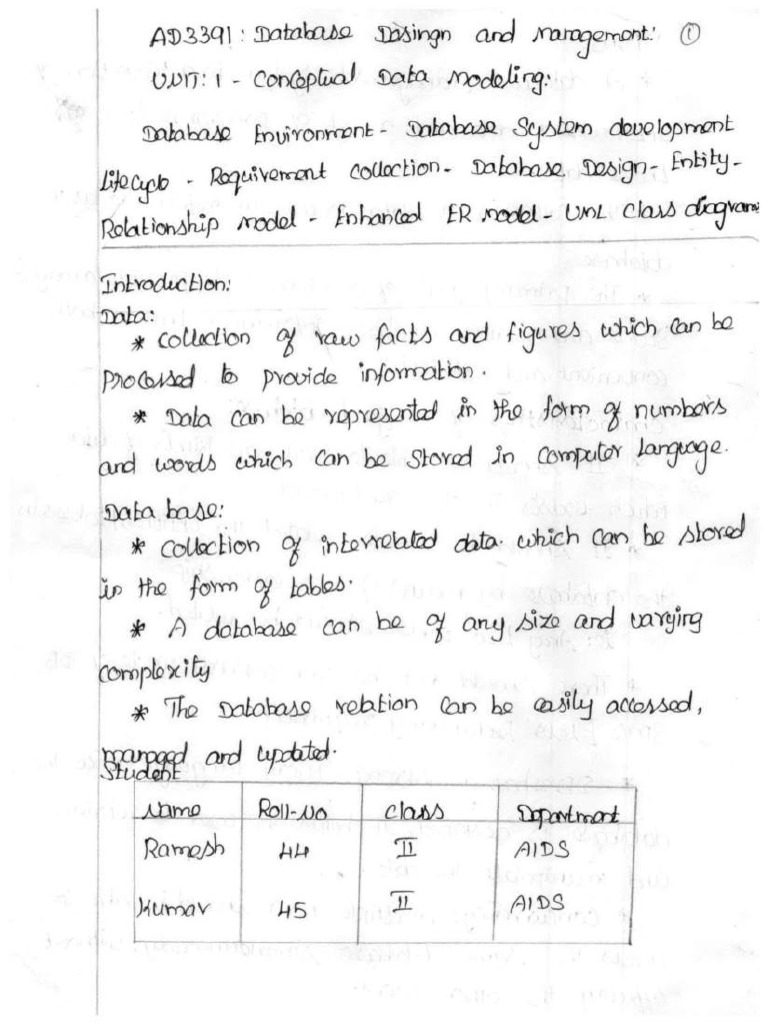 AD3391: Database Dasingn and Management: ①
UNIT: 1 - Conceptual Data Modeling:
Database Environment - Database System development
Lifecycle - Requirement collection - Database Design - Entity-
Relationship model - Enhanced ER model - UML Class diagrams
Introduction:
Data:
* collection of raw facts and figures which can be
Processed to provide information.
* Data can be represented in the form of numbers
and words which can be stored in computer Language.
Data base:
* collection of interrelated data. which can be stored
in the form of tables.
* A database can be of any size and varying
complexity
* The Database relation can be easily accessed,
managed and updated.
Student
Name Roll-No class Department
Ramesh 44 II AIDS
Kumar 45 II AIDS